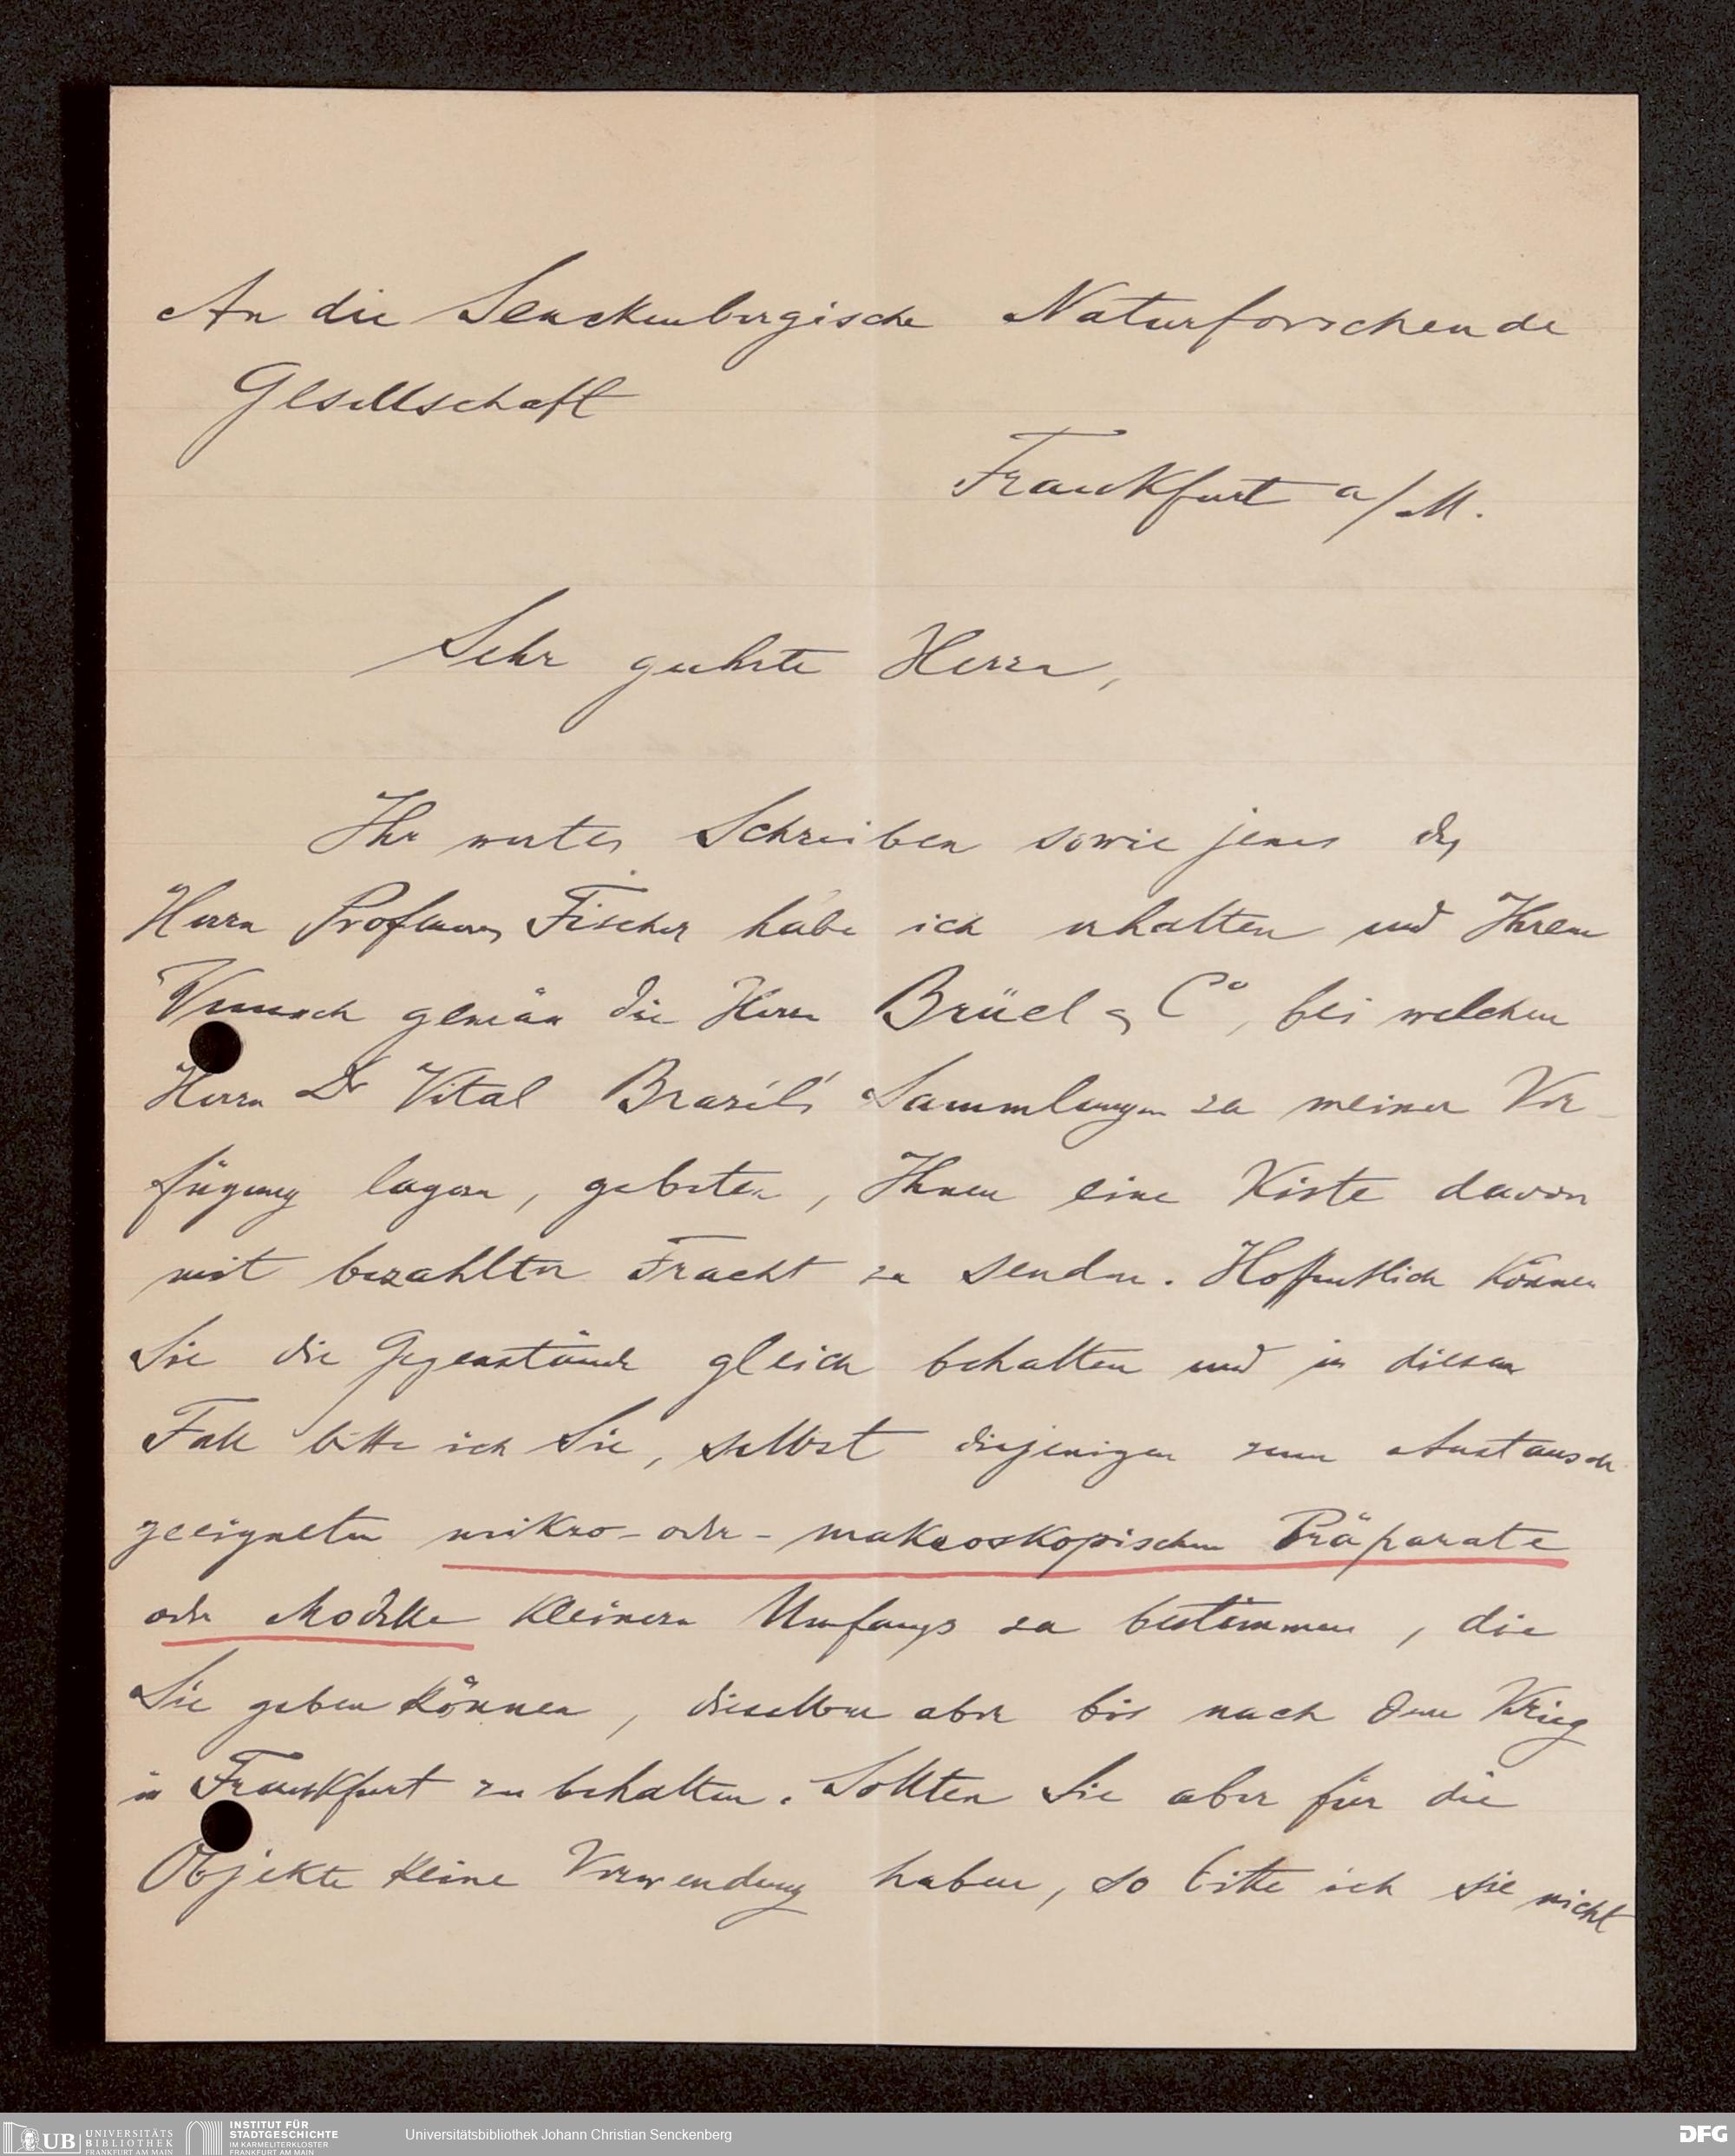 An die Senckenbergische Naturforschende
Gesellschaft
Frankfurt a/M.
Sehr geehrte Herrn,
Ihr wertes Schreiben sowie jenes des
Herrn Professors Fischer habe ich erhalten und Ihrem
Wunsch gemäss die Herrn Brüel & Cº, bei welchen
Herrn Dr Vital Brazil's Sammlungen zu meiner Ver-
fügung lagern, gebeten, Ihnen eine Kiste davon
mit bezahlter Fracht zu senden. Hoffentlich können
Sie die Gegenstände gleich behalten und in diesem
Fall bitte ich Sie, selbst diejenigen zum Austausch
geeigneten mikro- oder - makroskopischen Präparate
oder Modelle kleinern Umfangs zu bestimmen, die
Sie geben können, dieselben aber bis nach dem Krieg
in Frankfurt zu behalten. Sollten Sie aber für die
Objekte keine Verwendung haben, so bitte ich sie nicht
UB UNIVERSITÄTS
BIBLIOTHEK
FRANKFURT AM MAIN
INSTITUT FÜR
STADTGESCHICHTE
IM KARMELITERKLOSTER
FRANKFURT AM MAIN
Universitätsbibliothek Johann Christian Senckenberg
DFG